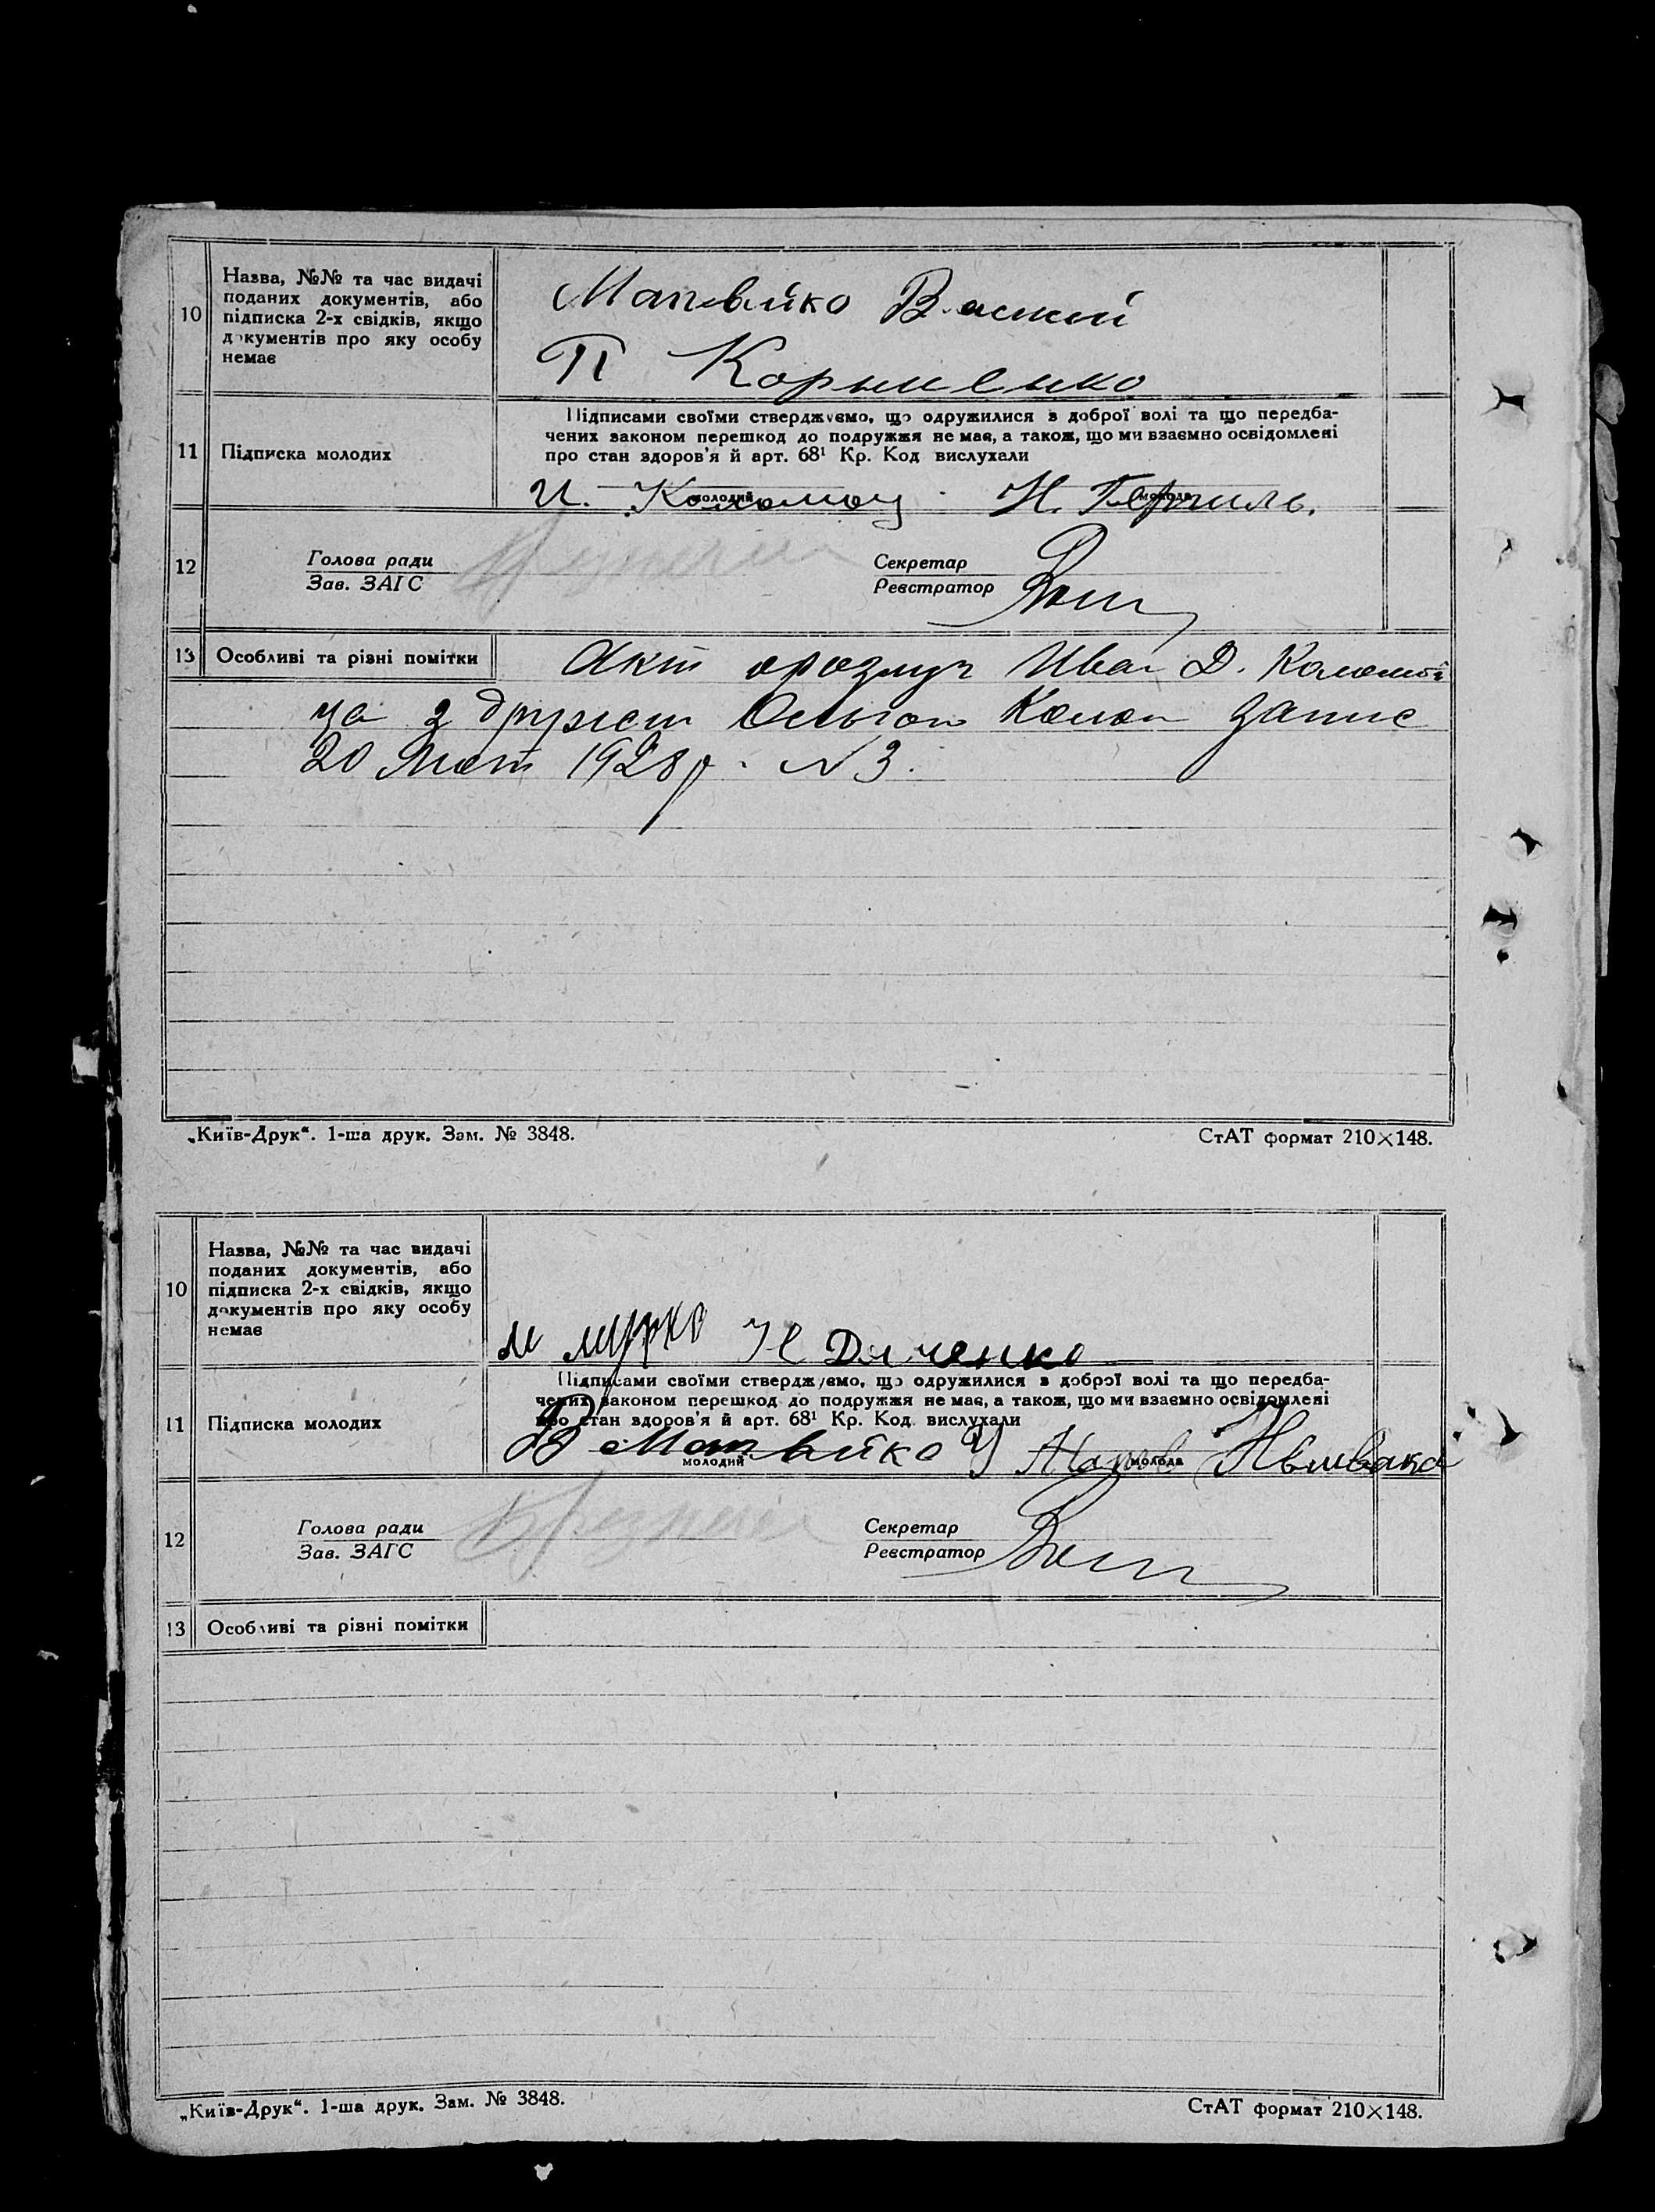 10
Назва, №№ та час видачі
поданих документів, або
підписка 2-х свідків, якщо
документів про яку особу
немає
Матвійко Василий
П Корниенко
11
Підписка молодих
Підписами своїми стверджуємо, що одружилися з доброї волі та що передба-
чених законом перешкод до подружжя не має, а також, що ми взаємно освідомлені
про стан здоров'я й арт. 68¹ Кр. Код вислухали
И. Коломоец Н. Гергиль.
молодий молода
12
Голова ради
Зав. ЗАГС
Секретар
Реєстратор
13
Особливі та різні помітки
Акт Иван Д.
за з Ольгою запис
20 Лют 1928 р. № 3.
„Київ-Друк“. 1-ша друк. Зам. № 3848.
СтАТ формат 210×148.
10
Назва, №№ та час видачі
поданих документів, або
підписка 2-х свідків, якщо
документів про яку особу
немає
М Мурко Н Дяченко
11
Підписка молодих
Підписами своїми стверджуємо, що одружилися з доброї волі та що передба-
чених законом перешкод до подружжя не має, а також, що ми взаємно освідомлені
про стан здоров'я й арт. 68¹ Кр. Код вислухали
В Матвійко
молодий молода
12
Голова ради
Зав. ЗАГС
Секретар
Реєстратор
13
Особливі та різні помітки
„Київ-Друк“. 1-ша друк. Зам. № 3848.
СтАТ формат 210×148.